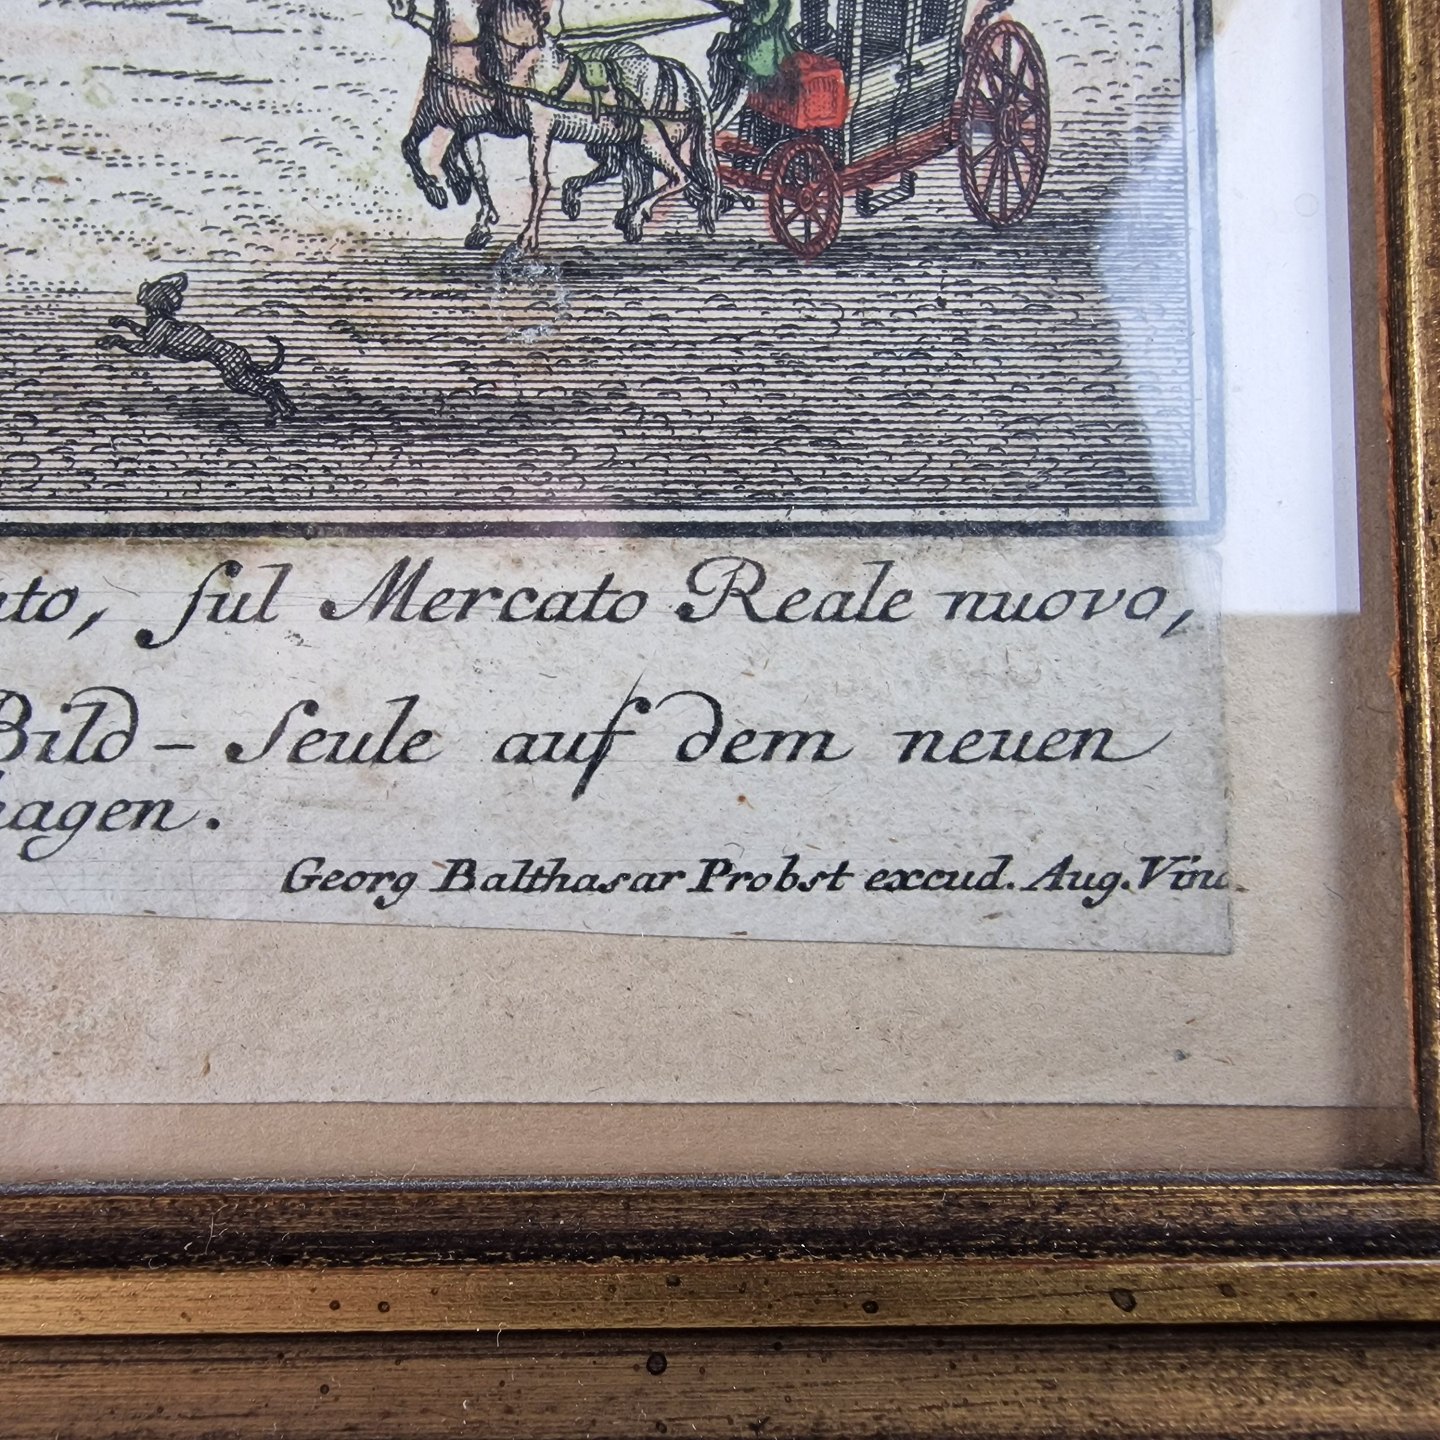 ato, ſul Mercato Reale nuovo,
Bild - Seule auf dem neuen
hagen.
Georg Balthasar Probst excud. Aug. Vind.